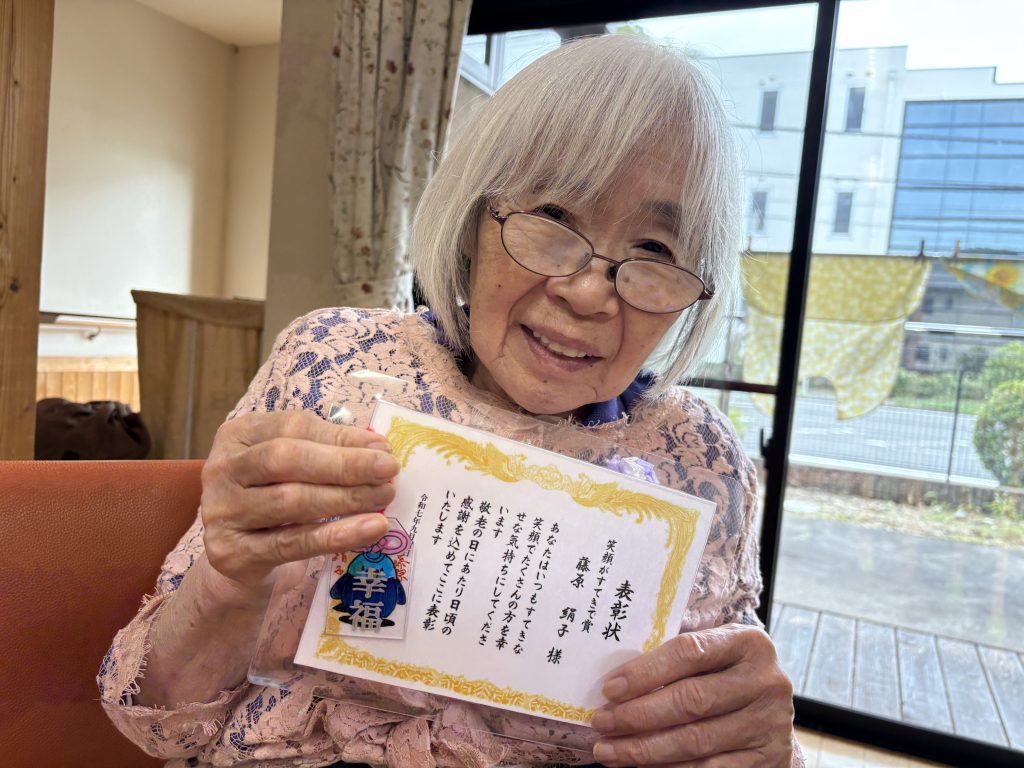 表彰状
笑顔がすてきで賞
藤原 絹子 様
あなたはいつもすてきな
笑顔でたくさんの方を幸
せな気持ちにしてくださ
います
敬老の日にあたり日頃の
感謝を込めてここに表彰
いたします
令和七年九月
幸福